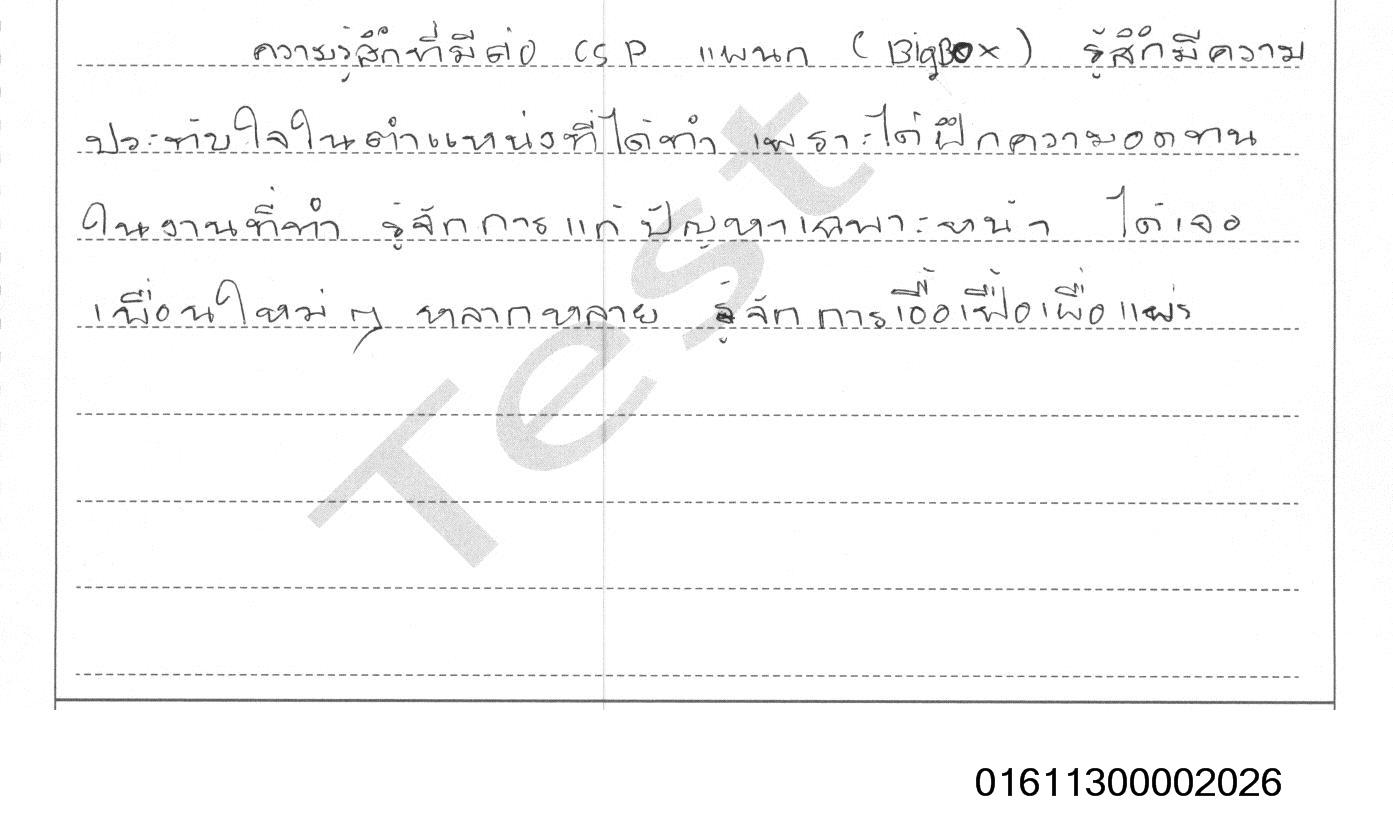 ความรู้สึกที่มีต่อ CSP แผนก (BigBox) รู้สึกมีความ
ประทับใจในตำแหน่งที่ได้ทำ เพราะได้ฝึกความอดทน
ในงานที่ทำ รู้จักการแก้ปัญหาเฉพาะหน้า ได้เจอ
เพื่อนใหม่ๆ หลากหลาย รู้จักการเอื้อเฟื้อเผื่อแผ่ร
Test
01611300002026